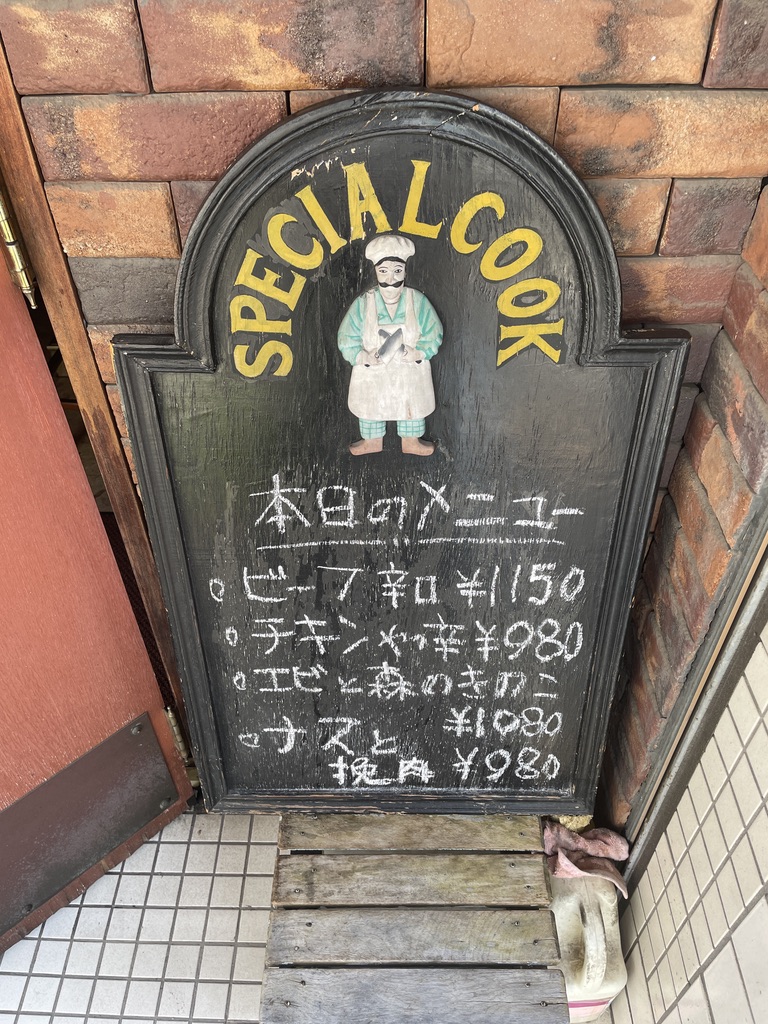 SPECIAL COOK
本日のメニュー
○ビーフ 辛口 ¥1150
○チキン やゝ辛 ¥980
○エビと森のきのこ
¥1080
○ナスと
挽肉 ¥980